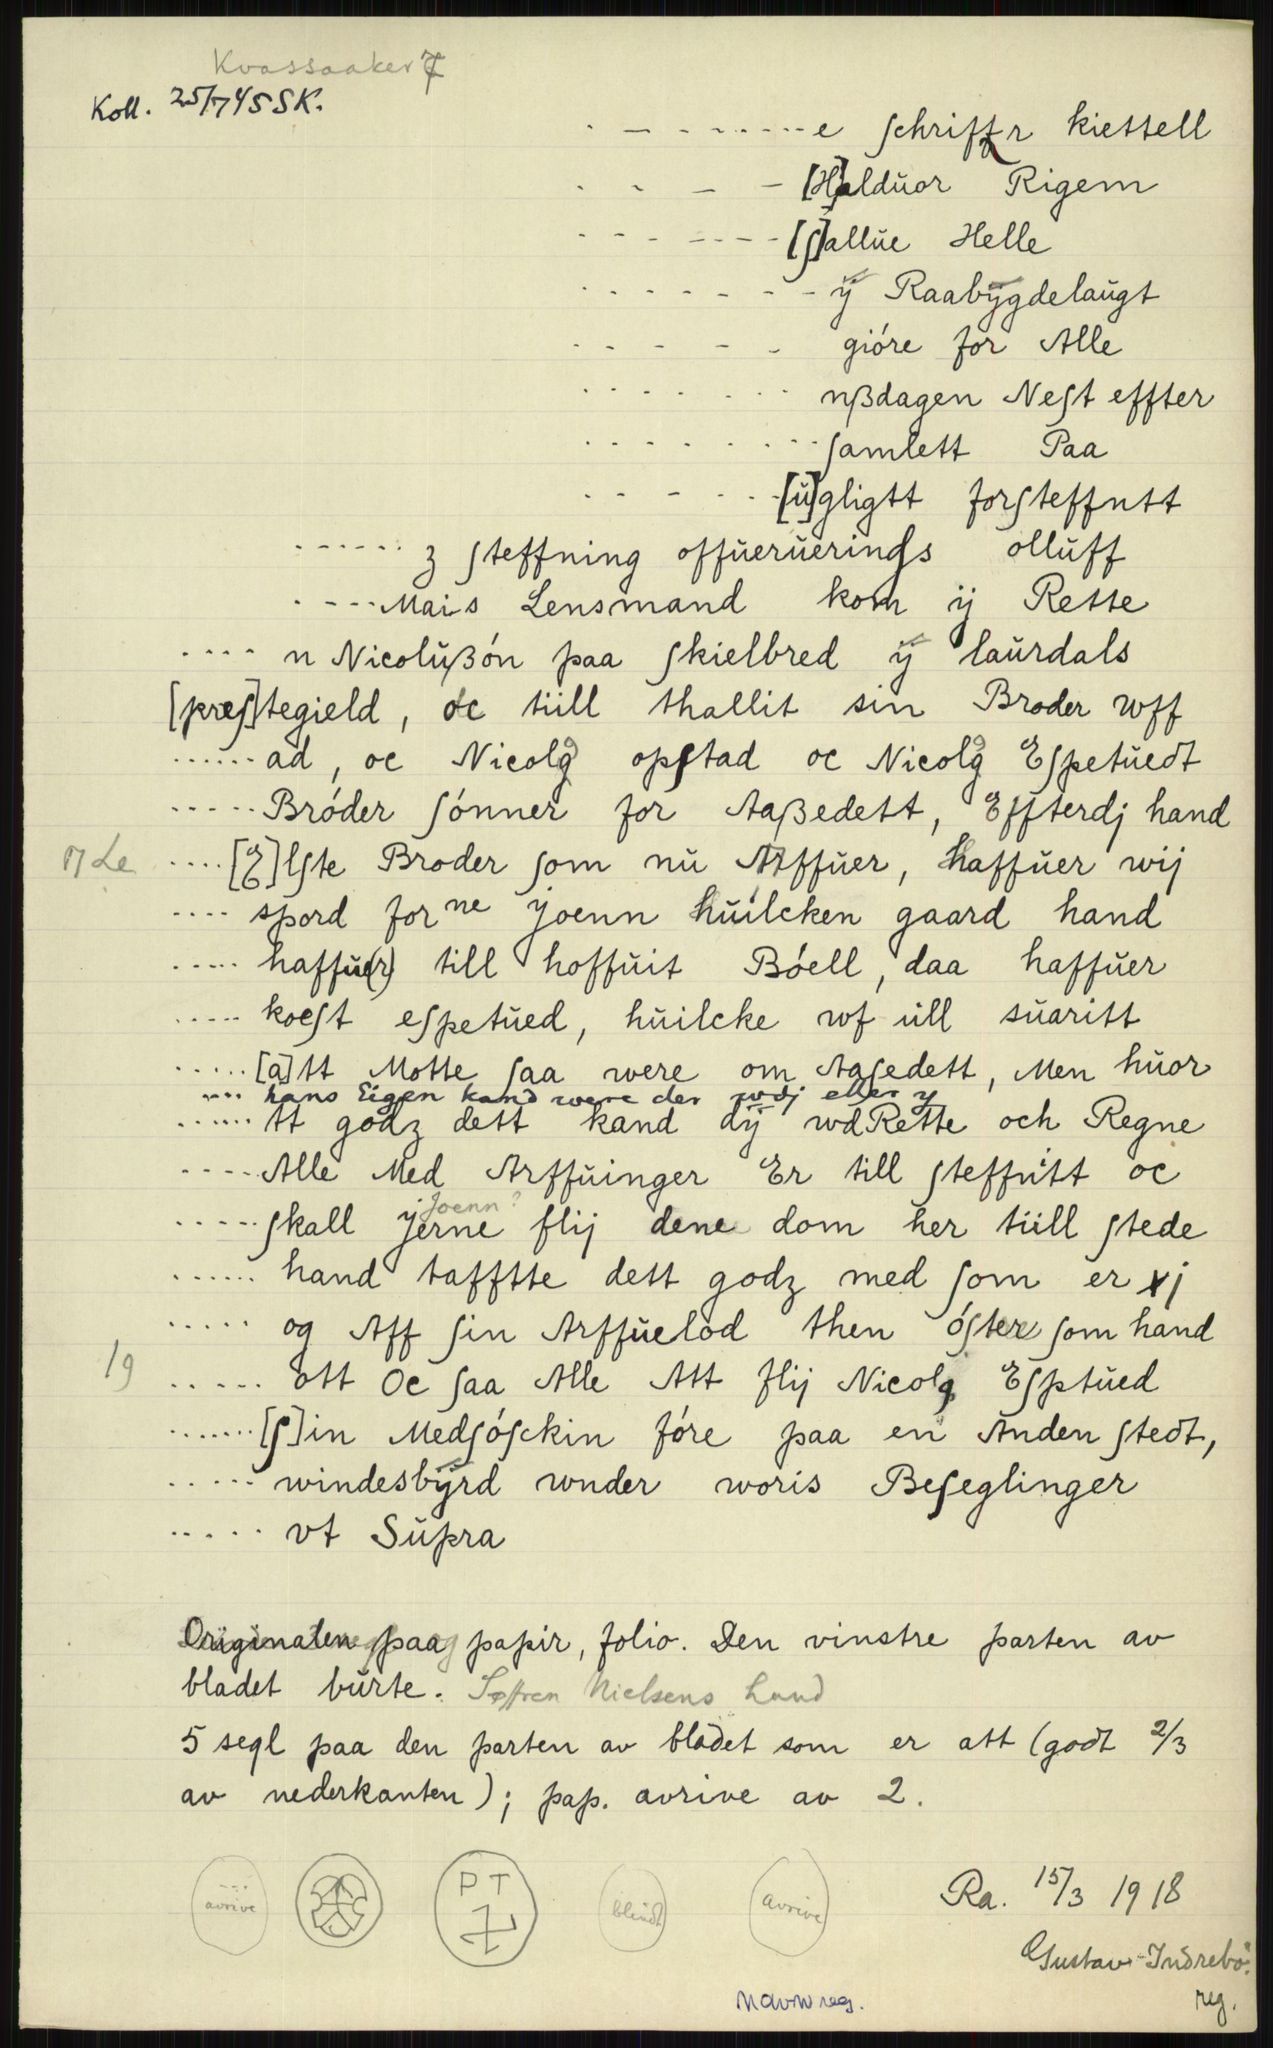 Kvassaaker 7
Koll. 25/7 45 SK.
. – - - ....... e ſchriffr kiettell
. - - – – [H]alduor Rigem
- - - - - - - [ſ]allue Helle
. . . . - - - ÿ Raabÿgdelaugt
. - - - - gióre for Alle
. . . . . . . nßdagen Neſt effter
. . . . . . . . ſamlett Paa
. - - . . . [u]gligtt forſteffntt
...... z ſteffning offueruerinds olluff
. - - - Mais Lensmand kom ij Rette
.... n Nicolußón paa ſkielbred ÿ laurdals
[preſ]tegield, oc tiill thallit sin Broder wff
...... ad, oc Nicolꝯ opſtad oc Nicolꝯ Eſpetuedt
..... Bróder ſónner for Aaßedett, Effterdj hand
17 Le .... [E]lſte Broder ſom nu Arffuer, haffuer wij
.... spord forne joenn huilcken gaard hand
..... haffue(r) till hoffuit Bóell, daa haffuer
..... koeſt eſpetued, huilcke wf uill suaritt
..... [a]tt Motte ſaa were om Aaſedett, Men huor
.... hans Eigen kand were der wdj eller y
...... tt godz dett kand dÿ wd Rette och Regne
.... Alle Med Arffuinger Er till ſteffnitt oc
Joenn?
..... ſkall jerne flij dene dom her tiill ſtede
...... hand tafftte dett godz med ſom er xj
..... og Aff ſin Arffuelod then óſter ſom hand
19 ..... ott Oc ſaa Alle Att flij Nicolꝯ Eſptued
....... [ſ]in Medſóſckin fóre paa en Anden ſtedt,
..... windesbÿrd wnder woris Beſeglinger
..... vt Supra
Originalen paa papir, folio. Den vinstre parten av
bladet burte. Søffren Nielsens haand
5 segl paa den parten av bladet som er att (godt 2/3
av nederkanten); pap. avrive av 2.
avrive
P T
blindt
avrive
Ra. 15/3 1918
Gustav Indrebø.
reg.
Navnreg.